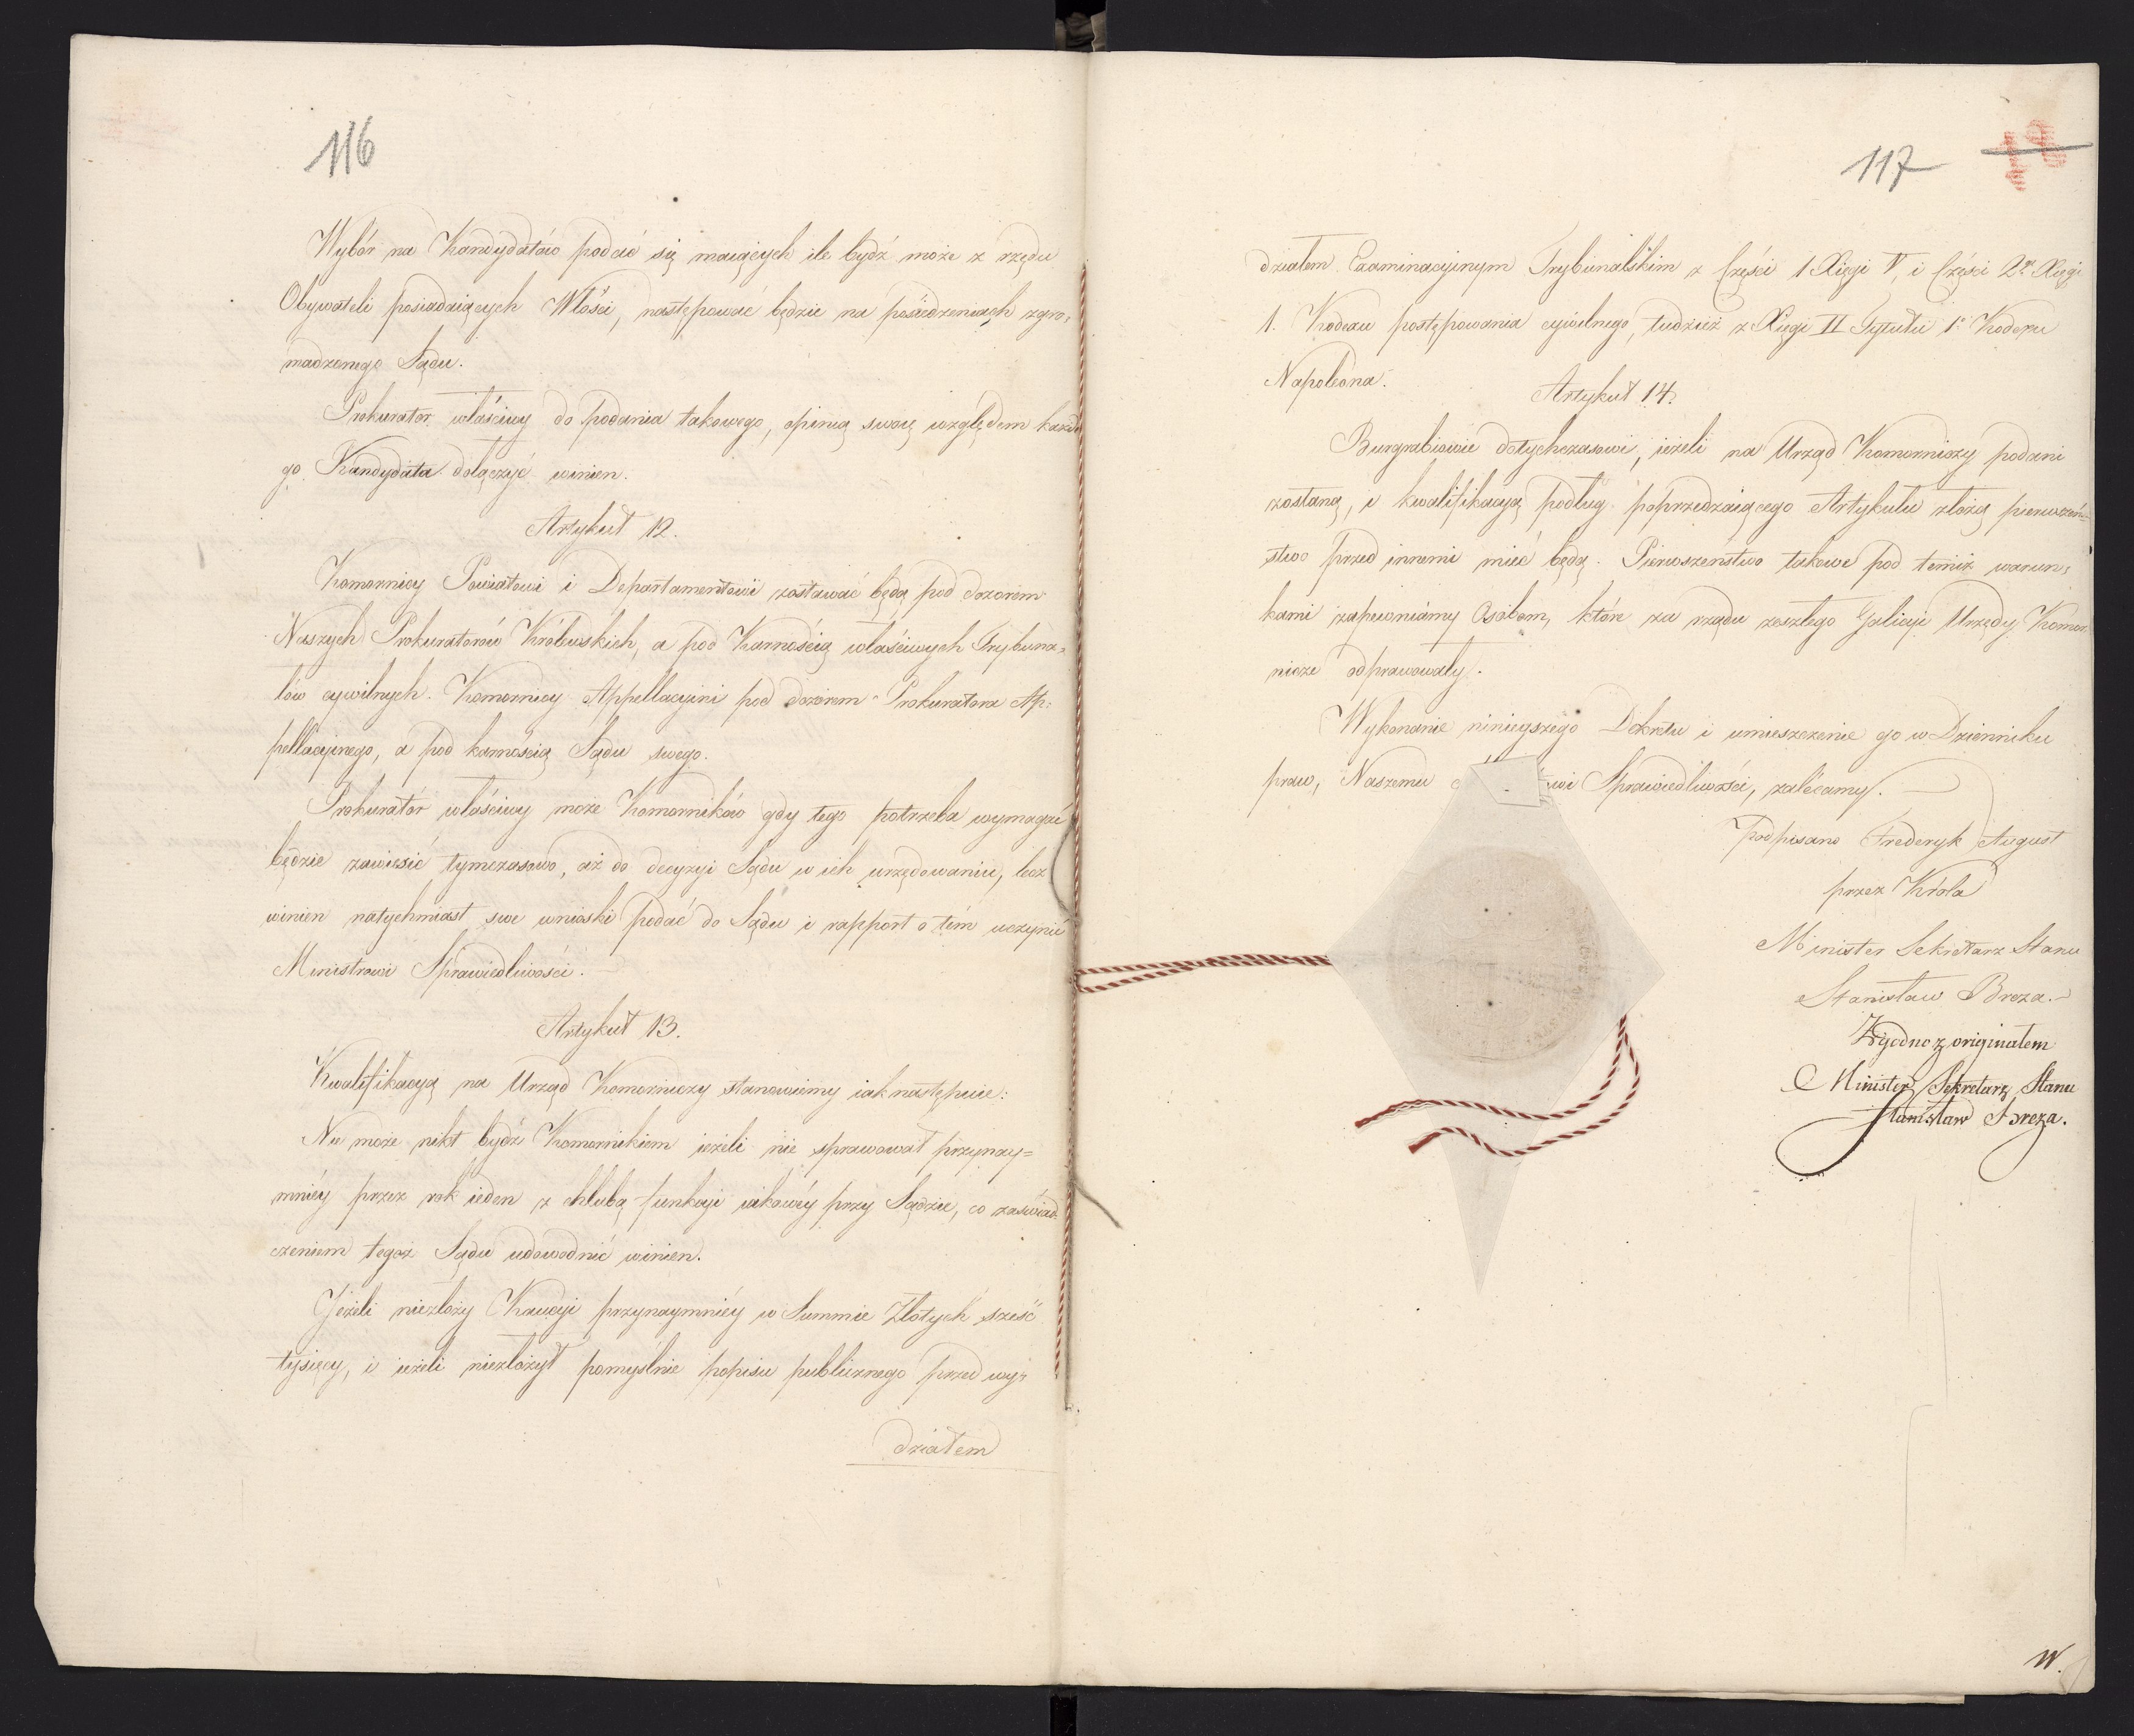 116
Wybór na Kandydatów podać się maiących ile bydź może z rzędu
Obywateli posiadaiących Włości, następować będzie na posiedzeniach zgro,
madzonego Sądu.
Prokurator właściwy do podania takowego, opinią swoią względem każde
go Kandydata dołączyć winien.
Artykuł 12.
Komornicy Powiatowi i Departamentowi zostawać będą pod dozorem
Naszych Prokuratorów Królewskich, a pod Karnością właściwych Trybuna,
łów cywilnych. Komornicy Appellacyini pod dozorem Prokuratora Ap:
pellacyinego, a pod karnością Sądu swego.
Prokurator właściwy może Komorników gdy tego potrzeba wymagać
będzie zawiesić tymczasowo, aż do decyzyi Sądu w ich urzędowaniu, lecz
winien natychmiast swe wnioski podać do Sądu i rapport o tém uczynić
Ministrowi Sprawiedliwości.
Artykuł 13.
Kwalifikacyą na Urząd Komorniczy stanowiemy iak następuie:
Nie może nikt bydź Komornikiem ieżeli nie sprawował przynay=
mniéy przez rok ieden z chlubą funkcyi iakowéy przy Sądzie, co zaświad
czeniem tegoż Sądu udowodnić winien.
Jeżeli niezłoży Kaucyi przynaymniéy w Summie Złotych sześć
tysięcy, i ieżeli niezłożył pomyślnie popisu publicznego przed wy,
działem
117
działem Examinacyinym Trybunalskim z Części 1 Xięgi V, i Części 2éy Xięgi
1. Kodexu postępowania cywilnego, tudzież z Xięgi II Tytułu 1o Kodexu
Napoleona.
Artykuł 14.
Burgrabiowie dotychczasowi, ieżeli na Urząd Komorniczy podani
zostaną, i kwalifikacyą podług poprzedzaiącego Artykułu złożą pierwszeń=
stwo przed innemi mieć będą. Pierwszeństwo takowe pod temiż warun,
kami zapewniamy Osobom, które za rządu zeszłego Galicyi Urzędy Komor
nicze odprawowały.
Wykonanie ninieyszego Dekretu i umieszczenie go w Dzienniku
praw, Naszemu wi Sprawiedliwości, zalécamy.
Podpisano Frederyk August
przez Króla
Minister Sekretarz Stanu
Stanisław Breza.
Zgodno z originałem
Minister Sekretarz Stanu
Stanisław Breza.
W.